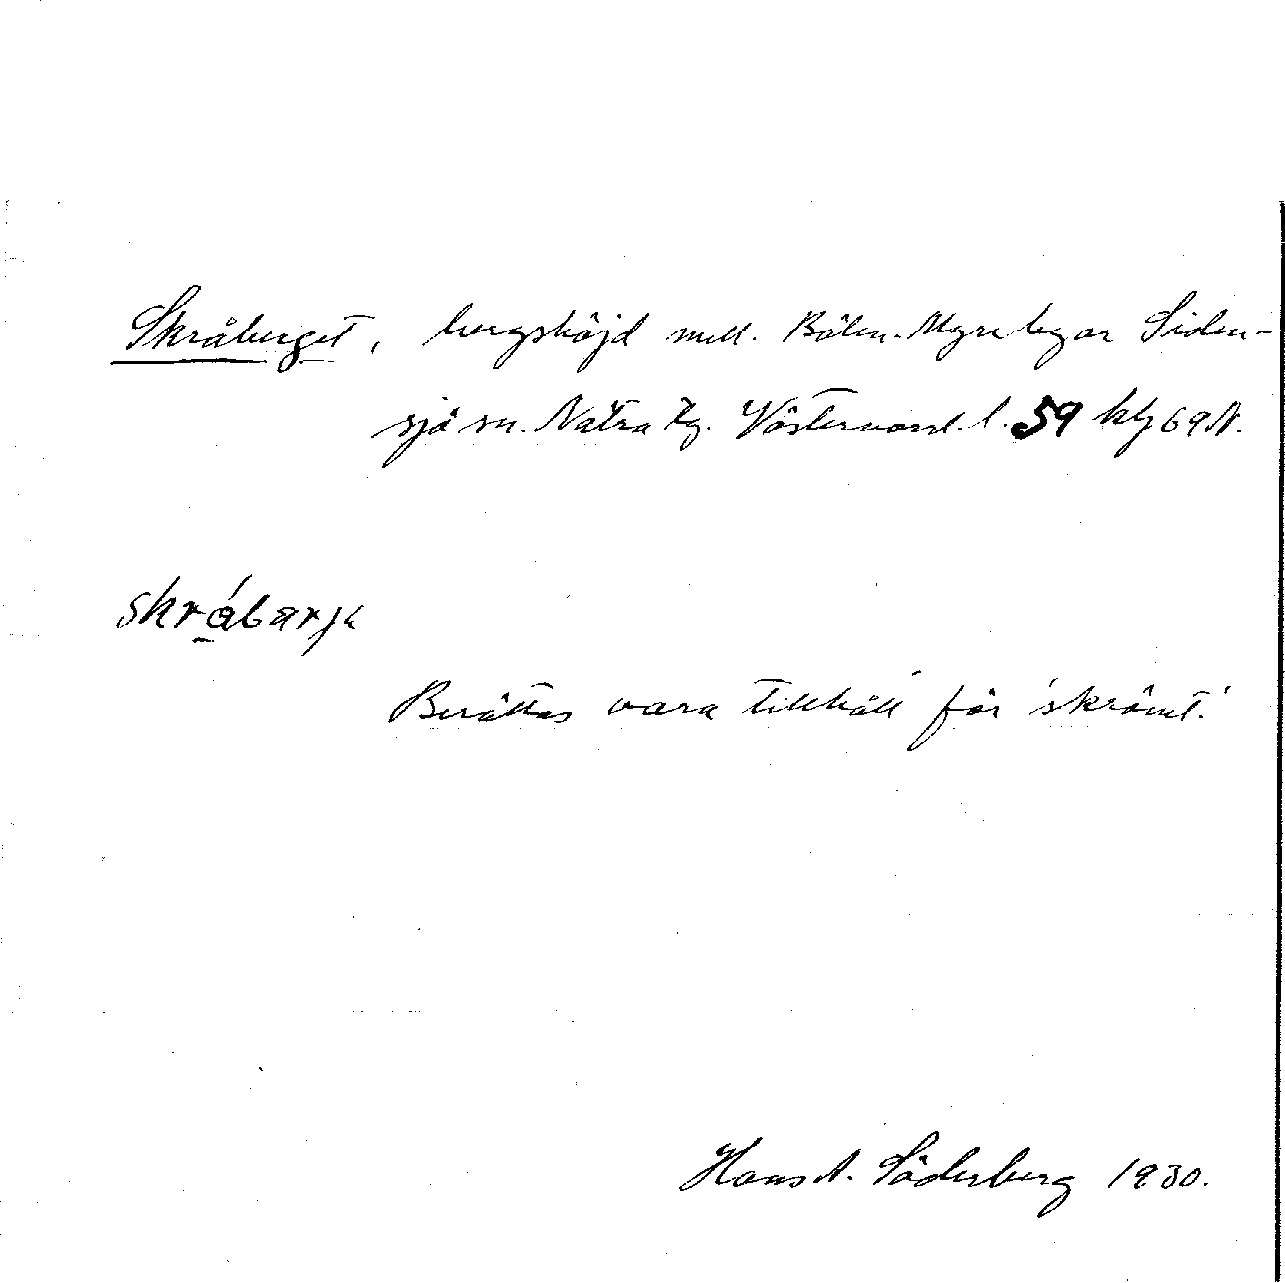 Skråberget, bergshöjd mell. Bölen-Myre byar Siden-
sjö sn. Nätra tg. Västernorrl. l. 59 kbl 69 N.
skråbarjɩ
Berättas vara tillhåll för 'skrömt'.
Hans A. Söderberg 1930.